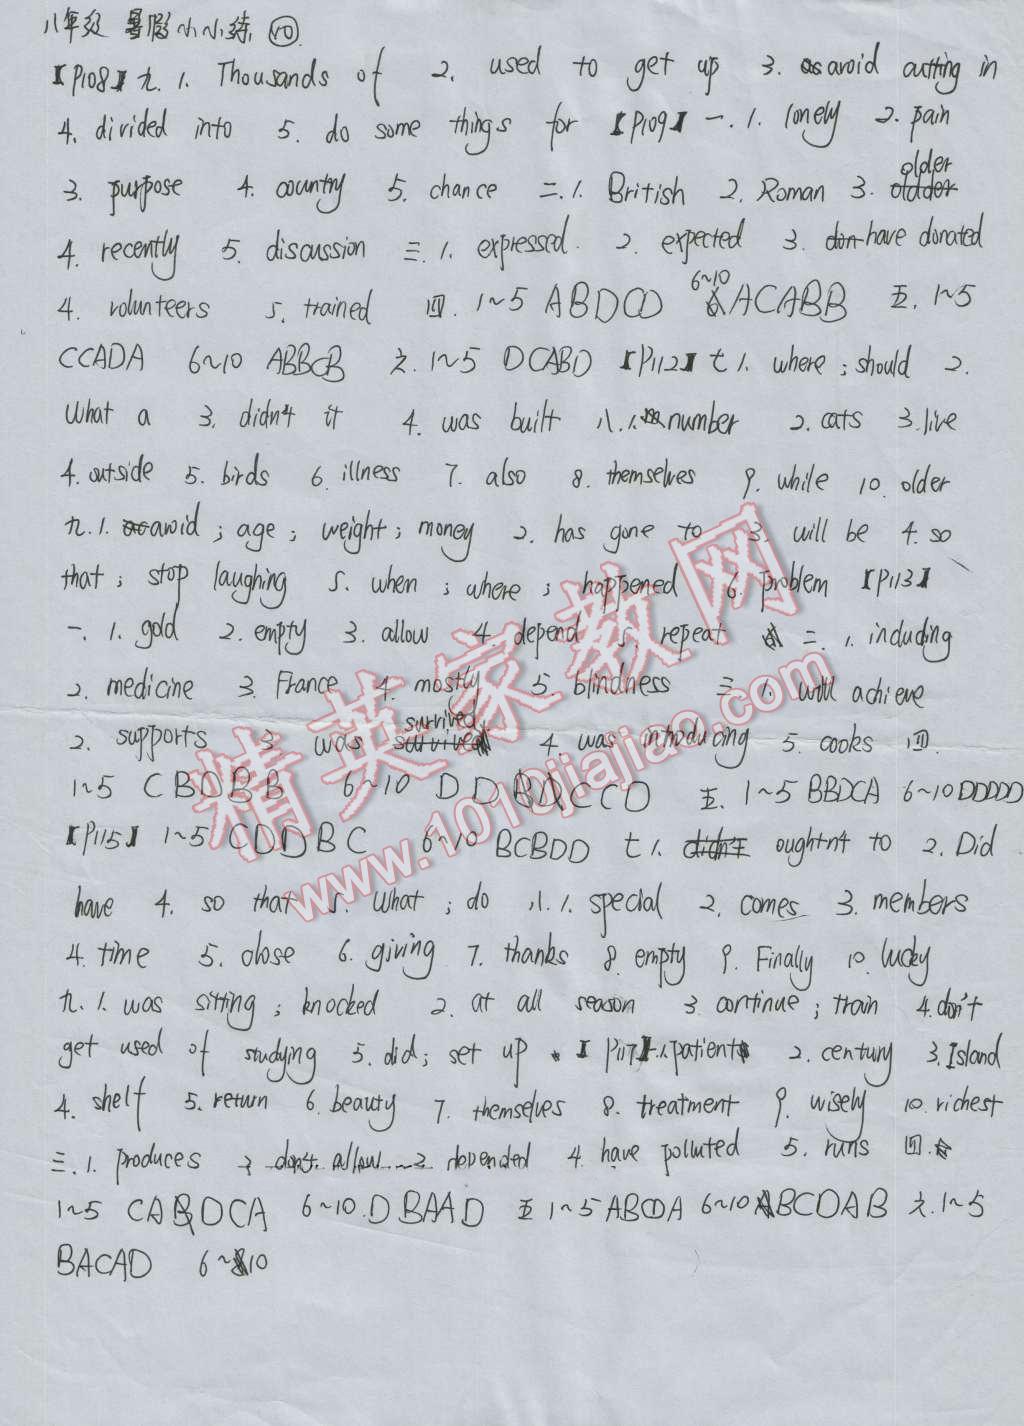 八年级 暑假小小练 10
【P108】九.1. Thousands of 2. used to get up 3. avoid cutting in
4. divided into 5. do some things for 【P109】一.1. lonely 2. pain
3. purpose 4. country 5. chance 二.1. British 2. Roman 3. older
4. recently 5. discussion 三.1. expressed 2. expected 3. have donated
4. volunteers 5. trained 四. 1~5 ABDCD 6~10 ACABB 五. 1~5
CCADA 6~10 ABBCB 六. 1~5 DCABD 【P112】七1. where ; should 2.
What a 3. didn't it 4. was built 八.1. number 2. cats 3. live
4. outside 5. birds 6. illness 7. also 8. themselves 9. while 10. older
九.1. avoid ; age ; weight ; money 2. has gone to 3. will be 4. so
that ; stop laughing 5. when ; where ; happened 6. problem 【P113】
一. 1. gold 2. empty 3. allow 4. depend 5. repeat 二. 1. including
2. medicine 3. France 4. mostly 5. blindness 三 1. will achieve
2. supports 3. was survived 4. was introducing 5. cooks 四.
1~5 CBDBB 6~10 DD CCD 五. 1~5 BBDCA 6~10 DDDDD
【P115】 1~5 CDDBC 6~10 BCBDD 七1. oughtn't to 2. Did
have 4. so that 5. What ; do 八.1. special 2. comes 3. members
4. time 5. close 6. giving 7. thanks 8. empty 9. Finally 10. lucky
九.1. was sitting ; knocked 2. at all season 3. continue ; train 4. don't
get used of studying 5. did ; set up 【P117】一.1. patient 2. century 3. Island
4. shelf 5. return 6. beauty 7. themselves 8. treatment 9. wisely 10. richest
三.1. produces 2. don't allow 3. depended 4. have polluted 5. runs 四.
1~5 CABDCA 6~10. DBAAD 五 1~5 ABCDA 6~10 BCDAB 六. 1~5
BACAD 6~10
精英家教网
www.1010jiajiao.com